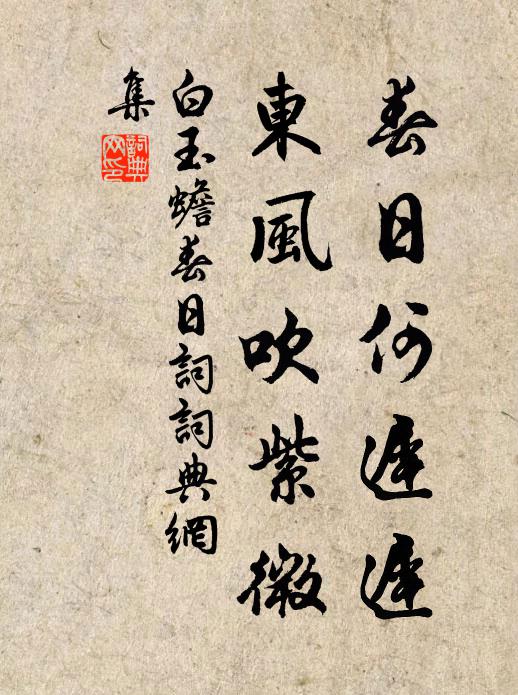 春日何遲遲
東風吹紫微
白玉蟾春日詞詞典網
集
詞典
网印